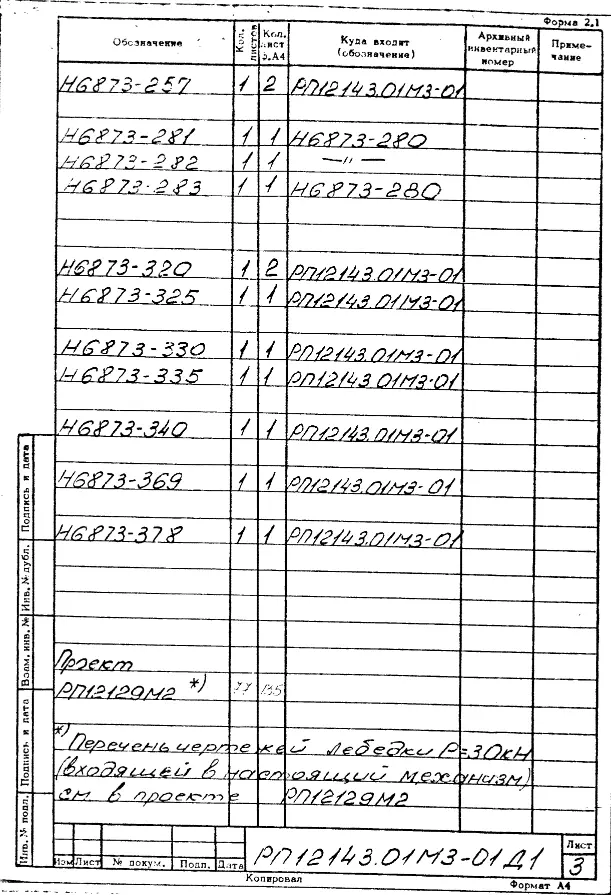 Форма 2.1
Обозначение Кол. листов Кол. лист ф.А4 Куда входит (обозначение) Архивный инвентарный номер Примечание
Н6873-257 1 2 РП12143.01МЗ-01
Н6873-281 1 1 Н6873-280
Н6873-282 1 1 —"—
Н6873-283 1 1 Н6873-280
Н6873-320 1 2 РП12143.01МЗ-01
Н6873-325 1 1 РП12143.01МЗ-01
Н6873-330 1 1 РП12143.01МЗ-01
Н6873-335 1 1 РП12143.01МЗ-01
Н6873-340 1 1 РП12143.01МЗ-01
Н6873-369 1 1 РП12143.01МЗ-01
Н6873-378 1 1 РП12143.01МЗ-01
Проект
РП12129М2 *) 77 135
*) Перечень чертежей лебедки Р=30кН
(входящей в настоящий механизм)
см. в проекте РП12129М2
Инв. № подл. Подпись и дата Взам. инв. № Инв. № дубл. Подпись и дата
РП12143.01МЗ-01Д1
Лист
3
Изм Лист № докум. Подп. Дата
Копировал Формат А4